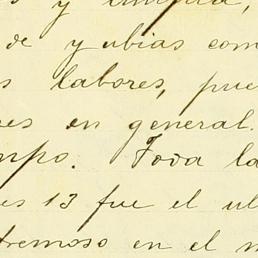 s y limpia,
de y ubias com
s labores, pue
es en general.
mpo. Toda la
es 13 fue el ul
tremoso en el m